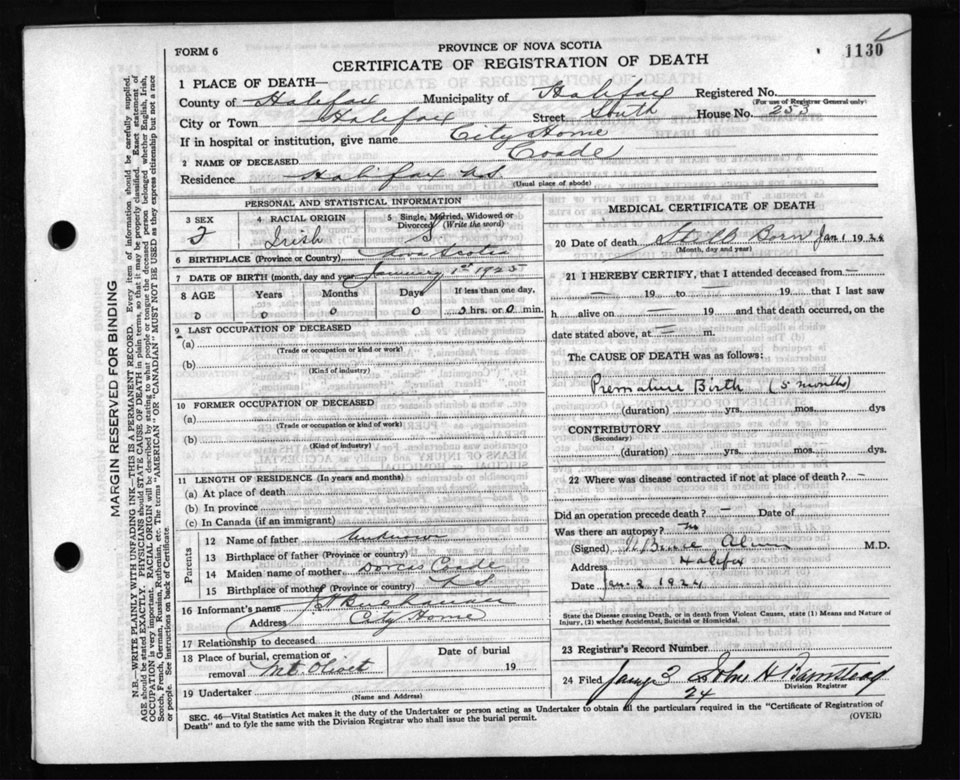 FORM 6
PROVINCE OF NOVA SCOTIA
CERTIFICATE OF REGISTRATION OF DEATH
1130
1 PLACE OF DEATH—
County of Halifax Municipality of Halifax Registered No.
(For use of Registrar General only)
City or Town Halifax Street South House No. 253
If in hospital or institution, give name City Home
2 NAME OF DECEASED Coade
Residence Halifax N.S.
(Usual place of abode)
PERSONAL AND STATISTICAL INFORMATION
3 SEX 4 RACIAL ORIGIN 5 Single, Married, Widowed or Divorced (Write the word)
Irish S
6 BIRTHPLACE (Province or Country) Nova Scotia
7 DATE OF BIRTH (month, day and year) January 1st 1925
8 AGE Years Months Days If less than one day,
0 0 0 0 0 hrs. or 0 min.
9 LAST OCCUPATION OF DECEASED
(a)
(Trade or occupation or kind or work)
(b)
(Kind of industry)
10 FORMER OCCUPATION OF DECEASED
(a)
(Trade or occupation or kind of work)
(b)
(Kind of industry)
11 LENGTH OF RESIDENCE (In years and months)
(a) At place of death
(b) In province
(c) In Canada (if an immigrant)
Parents
12 Name of father Unknown
13 Birthplace of father (Province or country)
14 Maiden name of mother Dorcas Coade
15 Birthplace of mother (Province or country) N.S.
16 Informant's name
Address City Home
17 Relationship to deceased
18 Place of burial, cremation or removal Mt. Olivet Date of burial 19
19 Undertaker
(Name and Address)
MEDICAL CERTIFICATE OF DEATH
20 Date of death Still Born Jan 1 1924
(Month, day and year)
21 I HEREBY CERTIFY, that I attended deceased from —
— 19 to — 19 that I last saw
h alive on — 19 and that death occurred, on
date stated above, at — m.
The CAUSE OF DEATH was as follows:
Premature Birth (5 months)
(duration) yrs. mos. dys
CONTRIBUTORY
(Secondary)
(duration) yrs. mos. dys
22 Where was disease contracted if not at place of death? —
Did an operation precede death? — Date of
Was there an autopsy? No
(Signed) M.D.
Address Halifax
Date Jan. 2 1924
State the Disease causing Death, or in death from Violent Causes, state (1) Means and Nature of
Injury, (2) whether Accidental, Suicidal or Homicidal.
23 Registrar's Record Number
24 Filed 3 John H Barnstead
24 Division Registrar
SEC. 46—Vital Statistics Act makes it the duty of the Undertaker or person acting as Undertaker to obtain all the particulars required in the "Certificate of Registration of
Death" and to fyle the same with the Division Registrar who shall issue the burial permit.
(OVER)
MARGIN RESERVED FOR BINDING
N.B.—WRITE PLAINLY WITH UNFADING INK—THIS IS A PERMANENT RECORD. Every item of information should be carefully supplied.
AGE should be stated EXACTLY. PHYSICIANS should STATE CAUSE OF DEATH in plain terms, so that it may be properly classified. Exact statement of
OCCUPATION is very important. RACIAL ORIGIN will be described by stating to what people or tongue the deceased person belonged whether English, Irish,
Scotch, French, German, Russian, Ruthenian, etc. The terms "AMERICAN" OR "CANADIAN" MUST NOT BE USED as they express citizenship but not a race
or people. See instructions on back of Certificate.